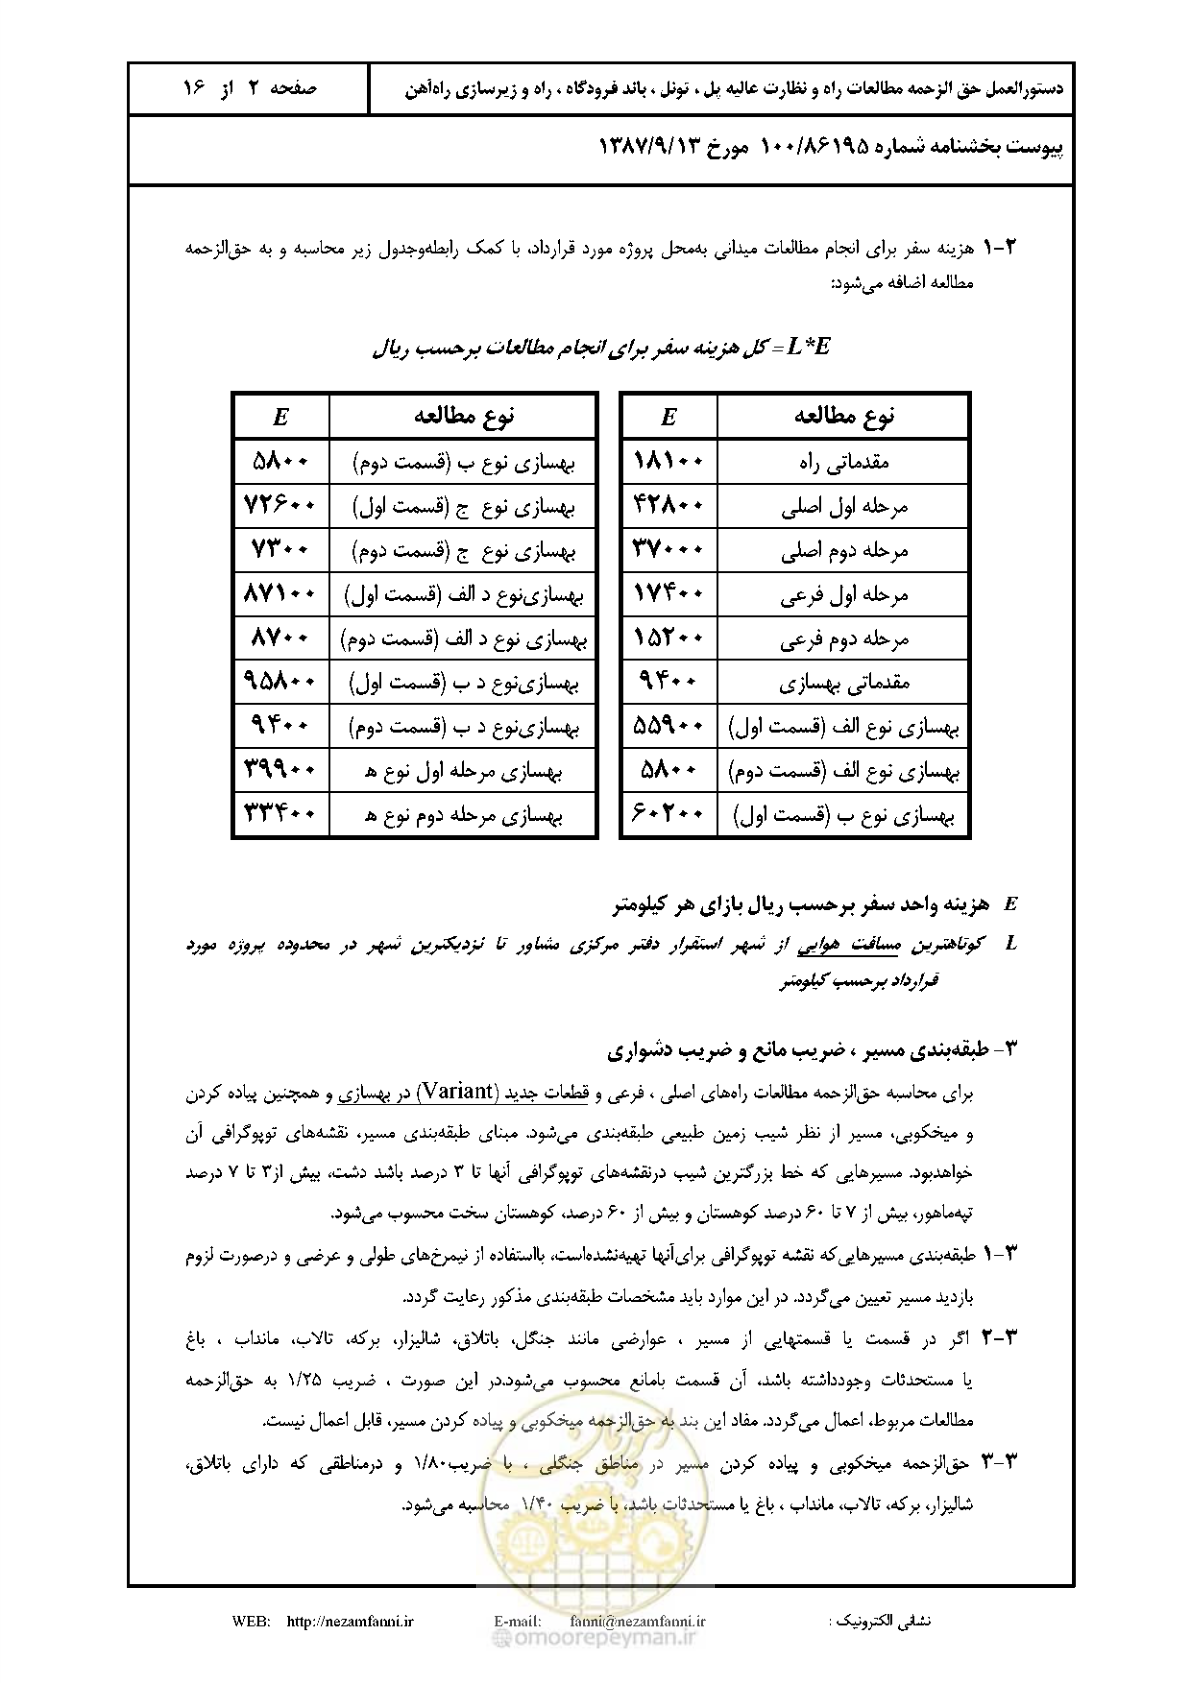 دستورالعمل حق الزحمه مطالعات راه و نظارت عالیه پل ، تونل ، باند فرودگاه ، راه و زیرسازی راه‌آهن
صفحه ۲ از ۱۶
پیوست بخشنامه شماره ۱۰۰/۸۶۱۹۵ مورخ ۱۳۸۷/۹/۱۳
۱-۲ هزینه سفر برای انجام مطالعات میدانی به‌محل پروژه مورد قرارداد، با کمک رابطه‌وجدول زیر محاسبه و به حق‌الزحمه
مطالعه اضافه می‌شود:
L*E = کل هزینه سفر برای انجام مطالعات برحسب ریال
نوع مطالعه E
مقدماتی راه ۱۸۱۰۰
مرحله اول اصلی ۴۲۸۰۰
مرحله دوم اصلی ۳۷۰۰۰
مرحله اول فرعی ۱۷۴۰۰
مرحله دوم فرعی ۱۵۲۰۰
مقدماتی بهسازی ۹۴۰۰
بهسازی نوع الف (قسمت اول) ۵۵۹۰۰
بهسازی نوع الف (قسمت دوم) ۵۸۰۰
بهسازی نوع ب (قسمت اول) ۶۰۲۰۰
نوع مطالعه E
بهسازی نوع ب (قسمت دوم) ۵۸۰۰
بهسازی نوع ج (قسمت اول) ۷۲۶۰۰
بهسازی نوع ج (قسمت دوم) ۷۳۰۰
بهسازی‌نوع د الف (قسمت اول) ۸۷۱۰۰
بهسازی نوع د الف (قسمت دوم) ۸۷۰۰
بهسازی‌نوع د ب (قسمت اول) ۹۵۸۰۰
بهسازی‌نوع د ب (قسمت دوم) ۹۴۰۰
بهسازی مرحله اول نوع ه ۳۹۹۰۰
بهسازی مرحله دوم نوع ه ۳۳۴۰۰
E هزینه واحد سفر برحسب ریال بازای هر کیلومتر
L کوتاهترین مسافت هوایی از شهر استقرار دفتر مرکزی مشاور تا نزدیکترین شهر در محدوده پروژه مورد
قرارداد برحسب کیلومتر
۳- طبقه‌بندی مسیر ، ضریب مانع و ضریب دشواری
برای محاسبه حق‌الزحمه مطالعات راه‌های اصلی ، فرعی و قطعات جدید (Variant) در بهسازی و همچنین پیاده کردن
و میخکوبی، مسیر از نظر شیب زمین طبیعی طبقه‌بندی می‌شود. مبنای طبقه‌بندی مسیر، نقشه‌های توپوگرافی آن
خواهدبود. مسیرهایی که خط بزرگترین شیب درنقشه‌های توپوگرافی آنها تا ۳ درصد باشد دشت، بیش از۳ تا ۷ درصد
تپه‌ماهور، بیش از ۷ تا ۶۰ درصد کوهستان و بیش از ۶۰ درصد، کوهستان سخت محسوب می‌شود.
۱-۳ طبقه‌بندی مسیرهایی‌که نقشه توپوگرافی برای‌آنها تهیه‌نشده‌است، بااستفاده از نیمرخ‌های طولی و عرضی و درصورت لزوم
بازدید مسیر تعیین می‌گردد. در این موارد باید مشخصات طبقه‌بندی مذکور رعایت گردد.
۲-۳ اگر در قسمت یا قسمتهایی از مسیر ، عوارضی مانند جنگل، باتلاق، شالیزار، برکه، تالاب، مانداب ، باغ
یا مستحدثات وجودداشته باشد، آن قسمت بامانع محسوب می‌شود.در این صورت ، ضریب ۱/۲۵ به حق‌الزحمه
مطالعات مربوط، اعمال می‌گردد. مفاد این بند به حق‌الزحمه میخکوبی و پیاده کردن مسیر، قابل اعمال نیست.
۳-۳ حق‌الزحمه میخکوبی و پیاده کردن مسیر در مناطق جنگلی ، با ضریب۱/۸۰ و درمناطقی که دارای باتلاق،
شالیزار، برکه، تالاب، مانداب ، باغ یا مستحدثات باشد، با ضریب ۱/۴۰ محاسبه می‌شود.
نشانی الکترونیک : E-mail: fanni@nezamfanni.ir WEB: http://nezamfanni.ir
omoorepeyman.ir